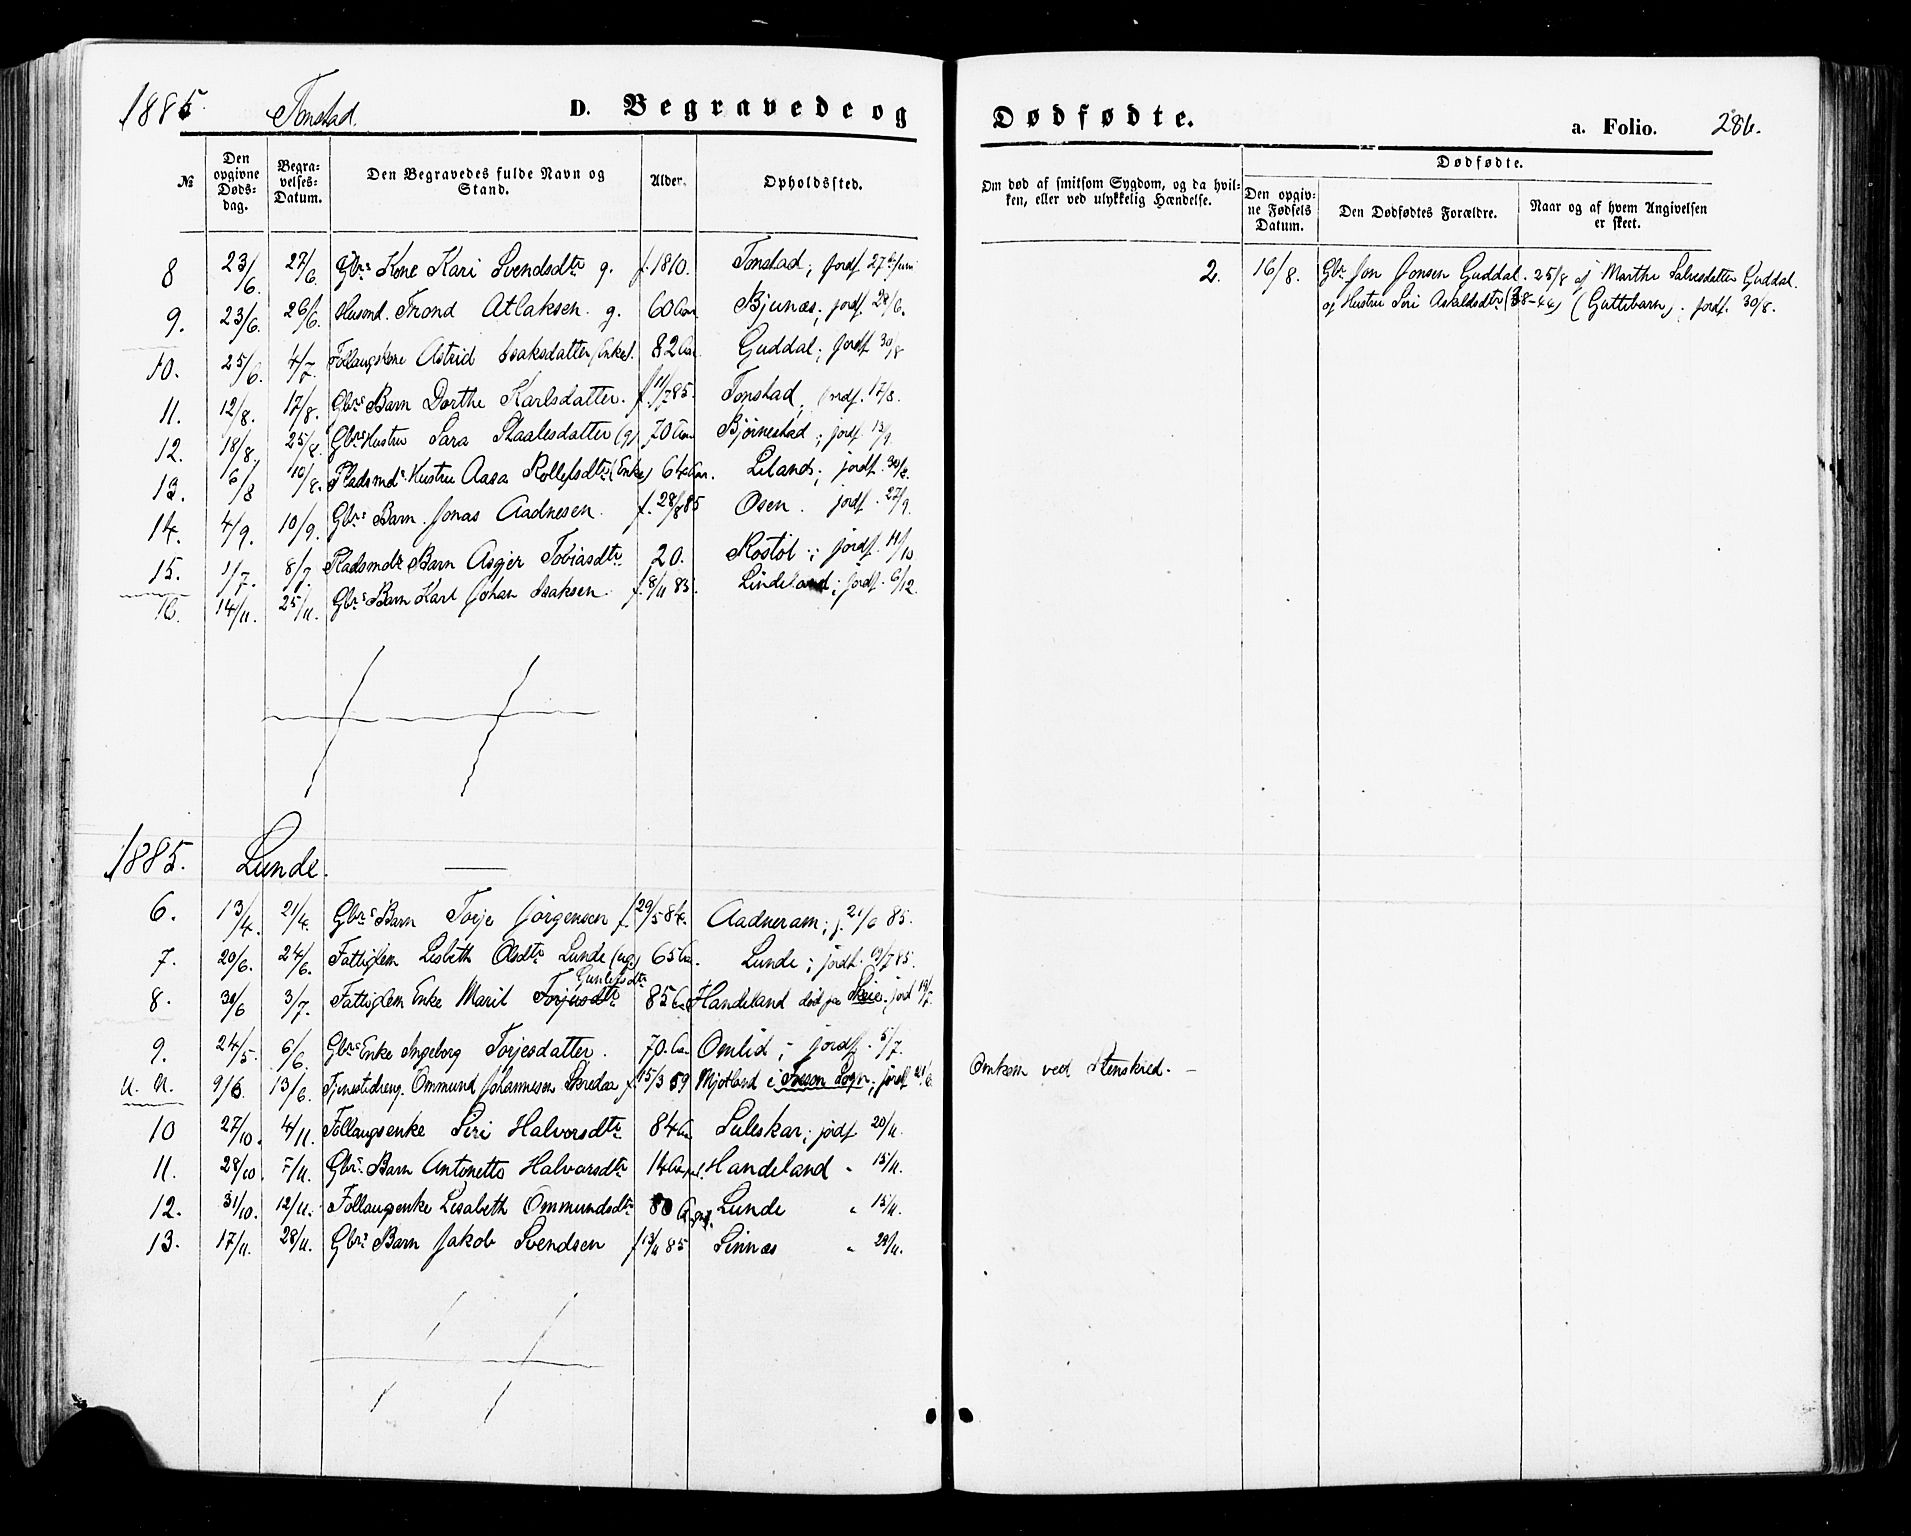 1885. Tonstad. D. Begravede og Dødfødte. a. Folio. 286.
№ Den opgivne Dødsdag. Begravelses-Datum. Den Begravedes fulde Navn og Stand. Alder. Opholdssted. Om død af smitsom Sygdom, og da hvilken, eller ved ulykkelig Hændelse. Dødfødte. Den opgivne Fødsels Datum. Den Dødfødtes Forældre. Naar og af hvem Angivelsen er skeet.
8 23/6. 27/6. Gbrs Kone Kari Svendsdtr g. f. 1810. Tonstad; jordf. 27 2. 16/8. Gbr. Jon Jonsen Guddal. 25/8 af Marthe Salvesdatter Guddal.
og Hustru Siri Asaldsdtr (Guttebarn). jordf. 30/8.
9. 23/6. 26/6. Husmd. Trond Atlaksen. g. 60 Aar Bjunæs; jordf. 28/6.
10. 25/6. 4/7. Follaugskone Astrid Isaksdatter, Enke. 82 Aar. Guddal; jordf. 30/8
11. 12/8. 17/8. Gbrs Barn Dorthe Karlsdatter. f. 11/7 85. Tonstad, jordf. 17/8.
12. 18/8. 25/8. Gbrs Hustru Sara Staalesdatter (g) 70 Aar Bjørnestad; jordf. 13/9.
13. 16/8 10/8. Pladsmds Hustru Aasa Rollefsdtr (Enke) 64 Aar. Liland; jordf. 30/8.
14. 4/9. 10/9. Gbrs Barn. Jonas Aadnesen. f. 28/8 85 Osen. jordf. 27/9.
15. 1/7. 8/7. Pladsmds Barn Asgjer Tobiasdtr 20. Rostøl; jordf. 11/10
16. 14/11. 25/11. Gbrs Barn Karl Johan Isaksen. f. 8/11 85. Lindeland; jordf. 6/12.
1885. Lunde.
6. 13/4. 21/4. Gbrs Barn Torje Jørgensen f. 29/5 84. Aadneram; j. 21/6 85.
7. 20/6. 24/6. Fattiglem Lisbeth Olsdtr Lunde (ug) 65 Aar. Lunde; jordf. 19/7 85.
Gunlefsdtr
8. 30/6 3/7. Fattiglem Enke Marit Torjusdtr 85 Aar Handeland død paa Skeie. jord 19/7.
9. 24/5. 6/6. Gbrs Enke Ingeborg Torjesdatter. 70. Aar Omlid; jordf. 5/7.
u. N. 9/6. 13/6. Tjenestedreng. Ommund Johannesen Skredaa f. 15/3 69 Mjotland i Fosse Sogn; jordf 21/6. Omkom ved Stenskred.
10 27/10. 4/11. Follaugsenke Siri Halvorsdtr 84 Aar Suleskar; jordf 20/11.
11. 28/10. 5/11. Gbrs Barn Antonette Halvorsdtr 14 Aar Handeland " 15/11.
12. 31/10. 12/11. Follaugsenke Lisabeth Ommundsdtr 80 Aar Lunde " 15/11.
13. 17/11. 28/11. Gbrs Barn Jakob Svendsen f 13/11 85 Sinnæs " 29/11.